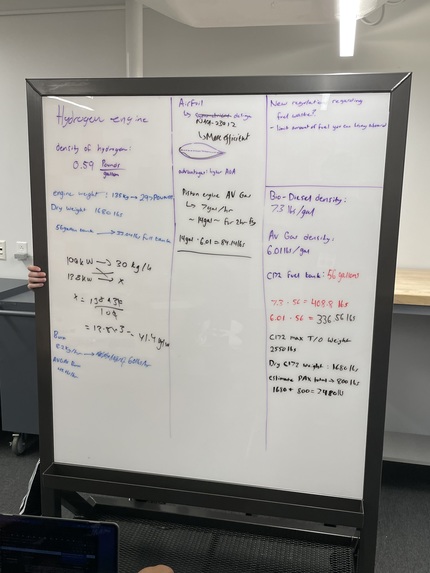 Hydrogen engine
density of hydrogen:
0.59 Pounds
gallon
engine weight: 135kg → 297 Pounds
Dry weight 1680 lbs
56 gallon tank → 33.04 lbs full tank
100kW → 30 kg/h
138kW → x
x = 138 × 30
100
= 13.8 × 3 = 41.4 kg/h
Airfoil
↳ design
NACA-23012
↳ More efficient
advantages: higher AOA
Piston engine AV Gas
↳ 7 gal/hr
- 14gal - For 2hr Fly
14gal · 6.01 = 84.14 lbs
New regulation regarding
fuel waste?
- limit amount of fuel you can bring
Bio-Diesel density:
7.3 lbs/gal
AV Gas density:
6.01 lbs/gal
C172 Fuel tank: 56 gallons
7.3 · 56 = 408.8 lbs
6.01 · 56 = 336.56 lbs
C172 max T/O Weight
2550 lbs
Dry C172 weight: 1680 lbs
estimate PAX total → 800 lbs
1680 + 800 = 2480 lb